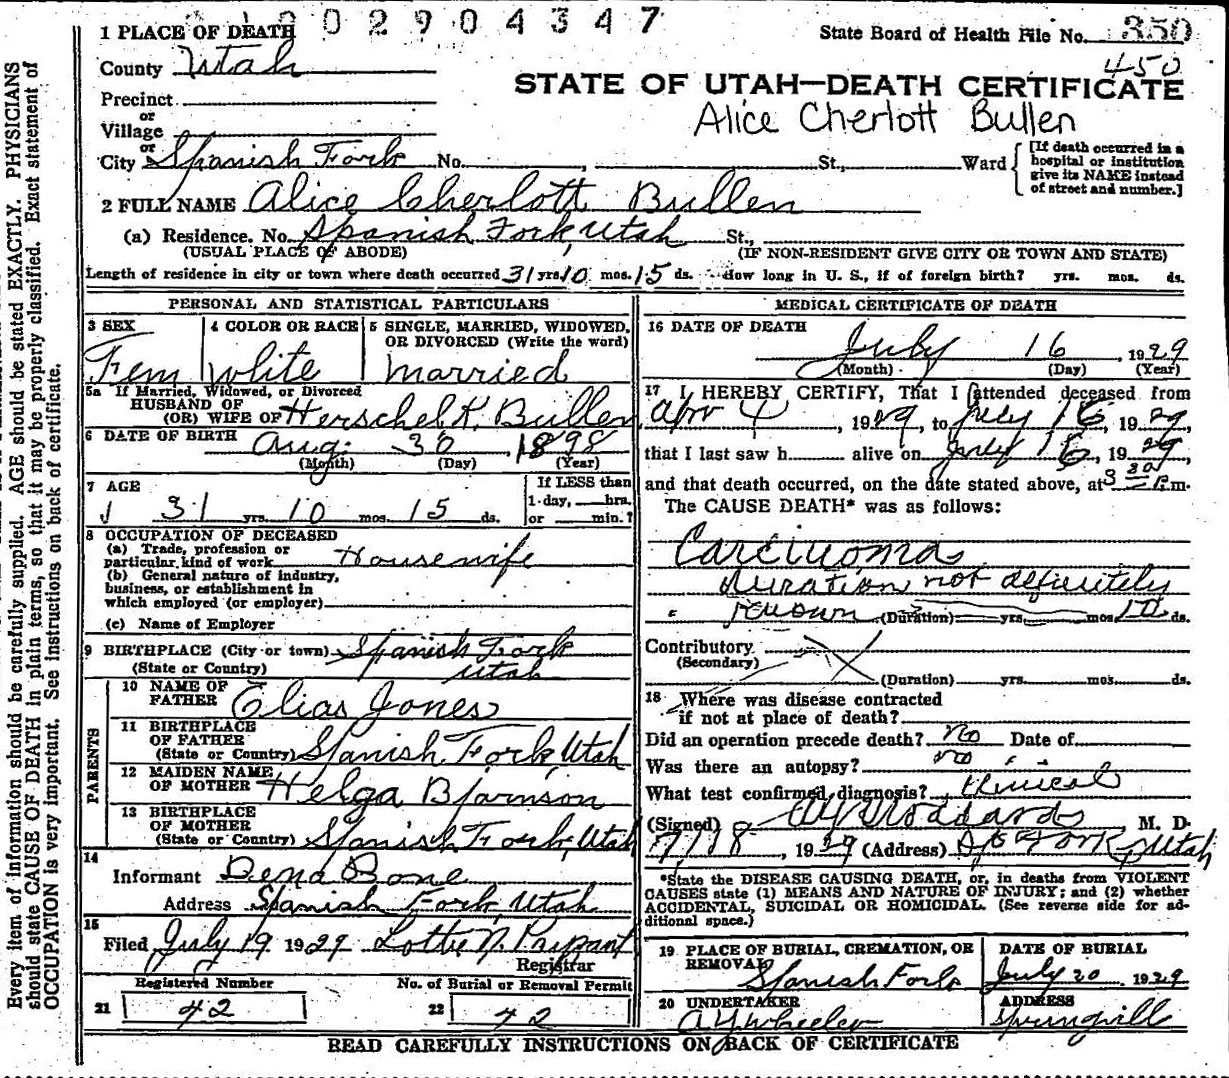 002904347
1 PLACE OF DEATH
State Board of Health File No. 350
450
County Utah
STATE OF UTAH—DEATH CERTIFICATE
Precinct
or
Village
Alice Cherlott Bullen
or
City Spanish Fork No. , St., Ward
[If death occurred in a hospital or institution give its NAME instead of street and number.]
2 FULL NAME Alice Cherlott Bullen
(a) Residence. No. Spanish Fork, Utah St.,
(USUAL PLACE OF ABODE) (IF NON-RESIDENT GIVE CITY OR TOWN AND STATE)
Length of residence in city or town where death occurred 31 yrs. 10 mos. 15 ds. How long in U. S., if of foreign birth? yrs. mos. ds.
PERSONAL AND STATISTICAL PARTICULARS
3 SEX
Fem
4 COLOR OR RACE
white
5 SINGLE, MARRIED, WIDOWED, OR DIVORCED (Write the word)
married
5a If Married, Widowed, or Divorced
HUSBAND OF
(OR) WIFE OF Herschel K. Bullen
6 DATE OF BIRTH Aug. 30, 1898
(Month) (Day) (Year)
7 AGE
31 yrs. 10 mos. 15 ds.
If LESS than
1 day, hrs.
or min.?
8 OCCUPATION OF DECEASED
(a) Trade, profession or
particular kind of work Housewife
(b) General nature of industry,
business, or establishment in
which employed (or employer)
(c) Name of Employer
9 BIRTHPLACE (City or town) Spanish Fork
(State or Country) Utah
PARENTS
10 NAME OF
FATHER Elias Jones
11 BIRTHPLACE
OF FATHER
(State or Country) Spanish Fork, Utah
12 MAIDEN NAME
OF MOTHER Helga Bjarnson
13 BIRTHPLACE
OF MOTHER
(State or Country) Spanish Fork, Utah
14
Informant Dena Bone
Address Spanish Fork, Utah
15
Filed July 19 1929 Lottie N.
Registrar
Registered Number No. of Burial or Removal Permit
21 42 22 42
MEDICAL CERTIFICATE OF DEATH
16 DATE OF DEATH
July 16, 1929
(Month) (Day) (Year)
17 I HEREBY CERTIFY, That I attended deceased from
Apr 4, 1929, to July 16, 1929,
that I last saw h alive on July 16, 1929,
and that death occurred, on the date stated above, at 3 30 P.m.
The CAUSE DEATH* was as follows:
Carcinoma
duration not definitely
known (Duration) yrs. mos. ds.
Contributory
(Secondary)
(Duration) yrs. mos. ds.
18 Where was disease contracted
if not at place of death?
Did an operation precede death? no Date of
Was there an autopsy? no
What test confirmed diagnosis? Clinical
(Signed) M. D.
7/18, 1929 (Address) Sp Fork, Utah
*State the DISEASE CAUSING DEATH, or, in deaths from VIOLENT
CAUSES state (1) MEANS AND NATURE OF INJURY; and (2) whether
ACCIDENTAL, SUICIDAL OR HOMICIDAL. (See reverse side for ad-
ditional space.)
19 PLACE OF BURIAL, CREMATION, OR
REMOVAL
Spanish Fork
DATE OF BURIAL
July 20 1929
20 UNDERTAKER
A Y Wheeler
ADDRESS
Springvill
READ CAREFULLY INSTRUCTIONS ON BACK OF CERTIFICATE
Every item of information should be carefully supplied. AGE should be stated EXACTLY. PHYSICIANS
should state CAUSE OF DEATH in plain terms, so that it may be properly classified. Exact statement of
OCCUPATION is very important. See instructions on back of certificate.